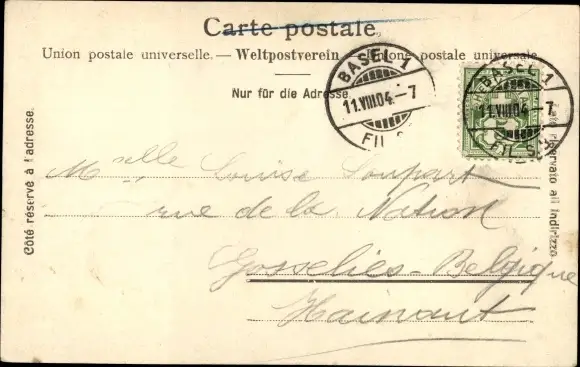 Carte postale.
Union postale universelle. — Weltpostverein — Unione postale universale
Nur für die Adresse.
BASEL 1
11.VIII.04.-7
FIL. S
BASEL 1
11.VIII.04.-7
FIL. S
5
Côté réservé à l'adresse.
Lato riservato all' indirizzo
Mselle Louise Loupart
rue de la Nation
Gosselies-Belgique
Hainaut